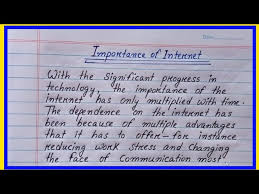 Date
Importance of Internet
With the significant progress in
technology, the importance of the
internet has only multiplied with time.
The dependence on the internet has
been because of multiple advantages
that it has to offer- for instance
reducing work stress and changing
the face of communication most